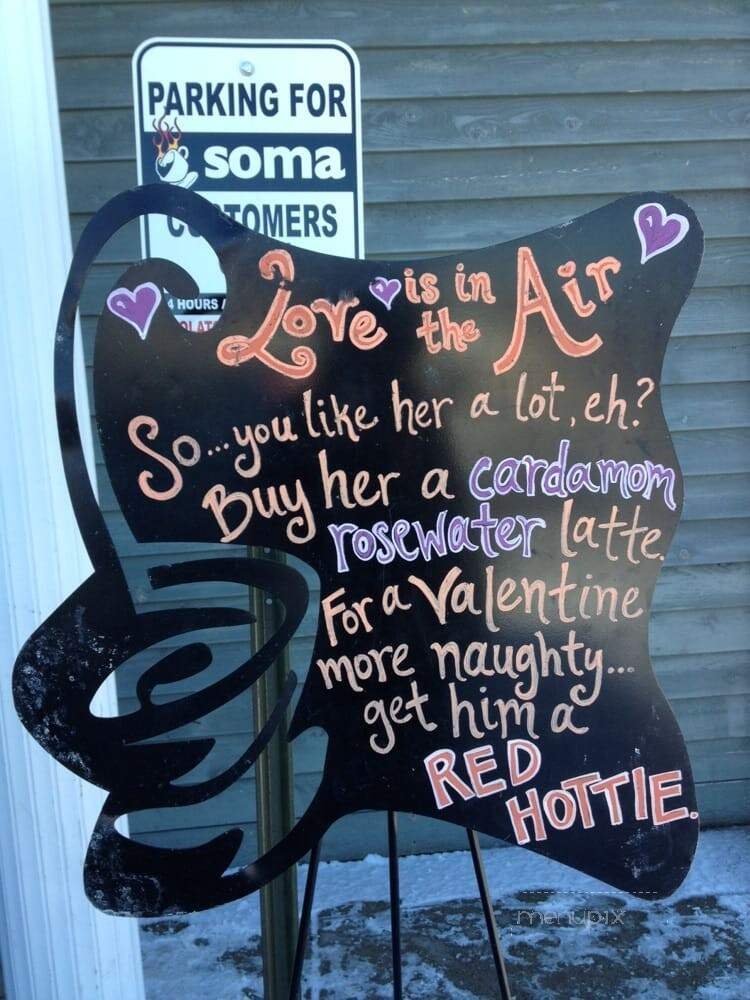 PARKING FOR
soma
CUSTOMERS
4 HOURS
Love is in the Air
So...you like her a lot, eh?
Buy her a cardamom
rosewater latte.
For a Valentine
more naughty...
get him a
RED
HOTTIE.
menupix